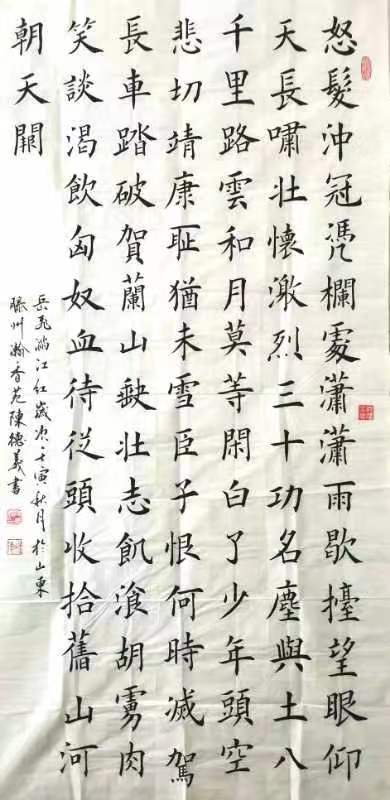 怒髮沖冠凴欄處瀟瀟雨歇擡望眼仰
天長嘯壯懷激烈三十功名塵與土八
千里路雲和月莫等閑白了少年頭空
悲切靖康恥猶未雪臣子恨何時滅駕
長車踏破賀蘭山缺壯志飢飡胡虜肉
笑談渴飲匈奴血待從頭收拾舊山河
朝天闕
岳飛滿江紅歲次壬寅秋月於山東
瀚香苑陳德義書